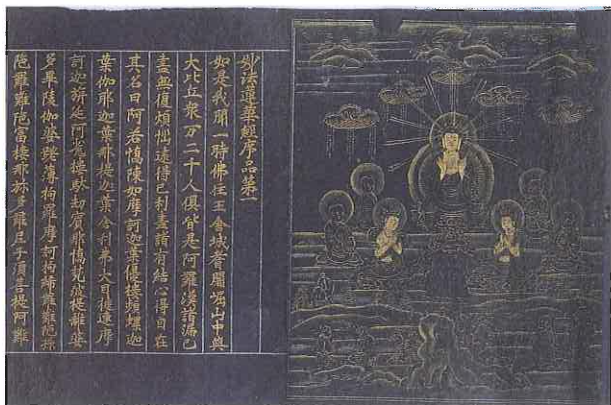 妙法蓮華經序品第一
如是我聞一時佛住王舍城耆闍崛山中與
大比丘衆万二千人俱皆是阿羅漢諸漏已
盡無復煩惱逮得己利盡諸有結心得自在
其名曰阿若憍陳如摩訶迦葉優樓頻螺迦
葉伽耶迦葉那提迦葉舍利弗大目揵連摩
訶迦旃延阿㝹樓馱劫賓那憍梵波提離婆
多畢陵伽婆蹉薄拘羅摩訶拘絺羅難陀孫
陀羅難陀富樓那弥多羅尼子須菩提阿難